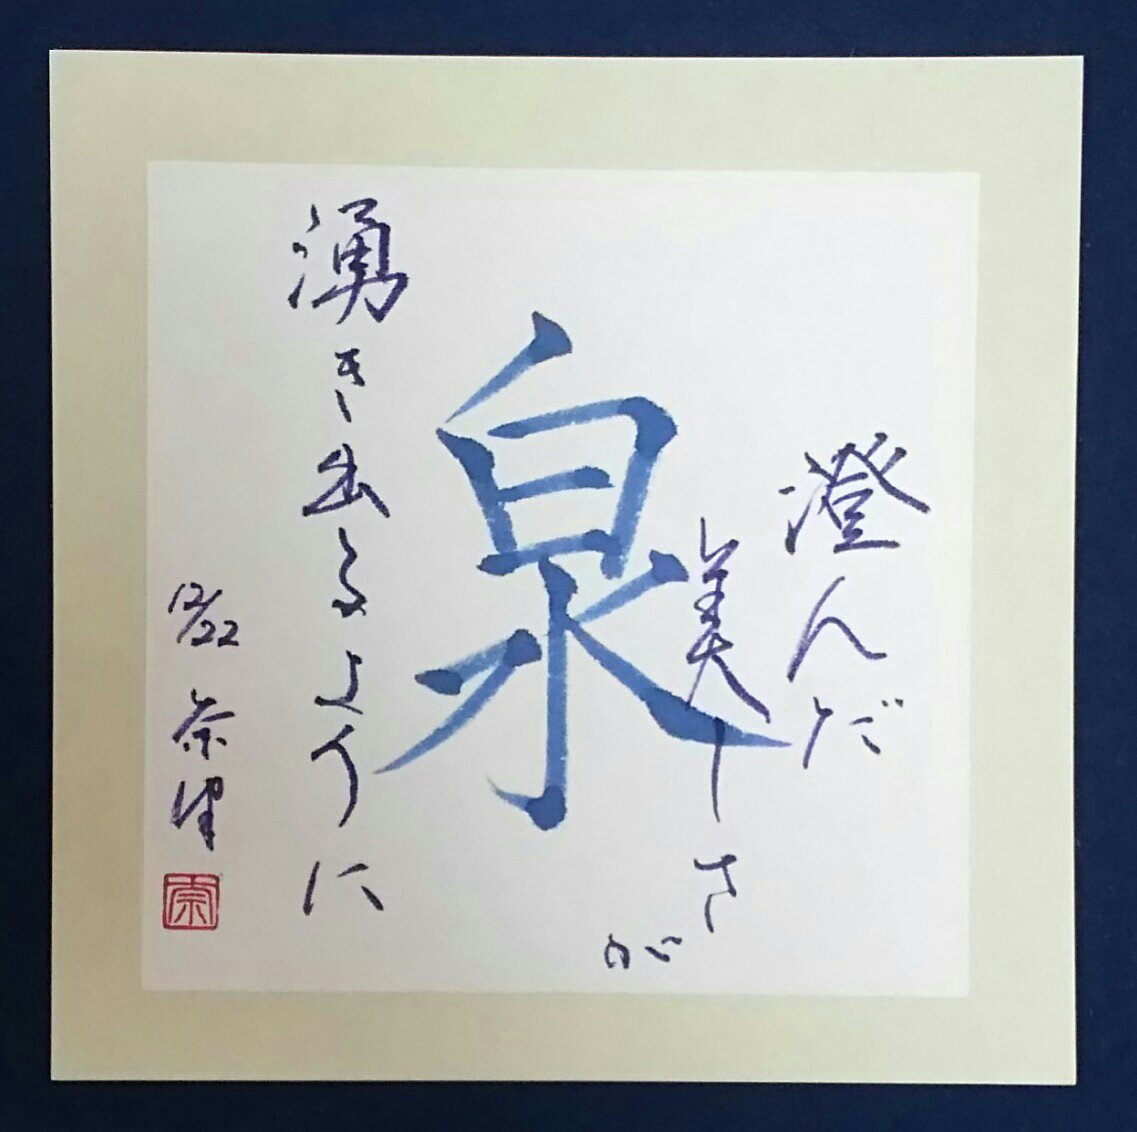 澄んだ
美しさ
が
泉
湧き出るように
12/22
奈